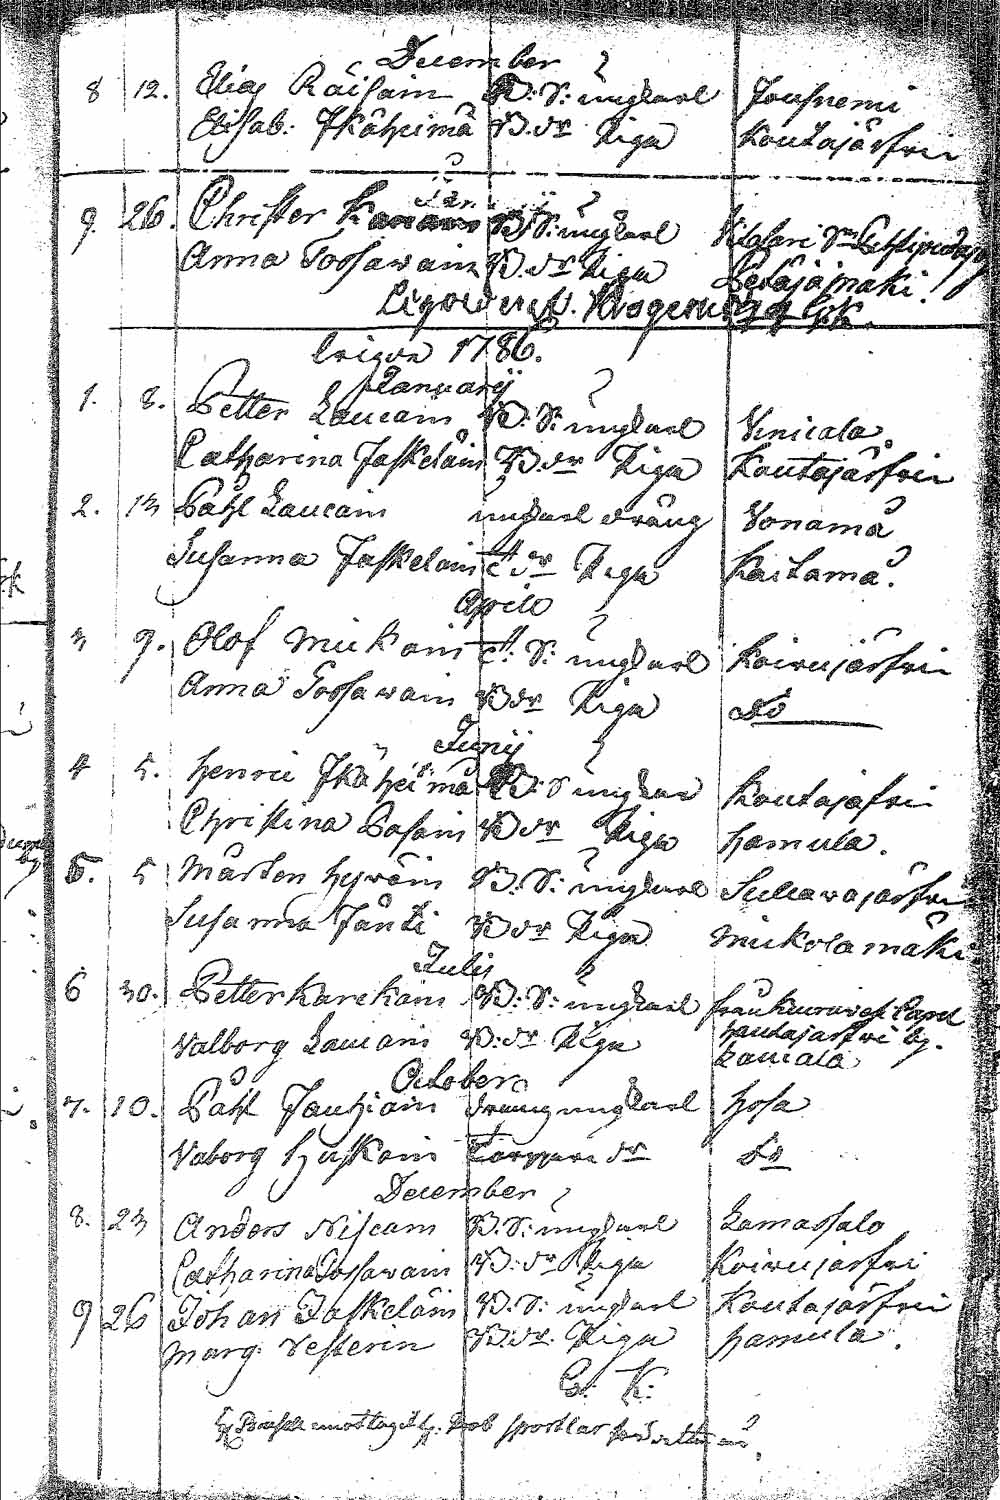 December
8 12. Elias Räisain B: S: ungkarl Jousnemi
Elisab: Ikäheimå B. dr Piga Koutajärfvi
9. 26. Christer B: S: ungkarl
Anna Tossawain B. dr Piga Petäjämäki.
1786.
Januarij
1. 8. Petter Laucain B: S: ungkarl Vinicala
Catharina Jaskeläin B. dr Piga Koutajärfvi
2. 13 Påhl Laucain ungkarl dräng Vonamå
Susanna Jaskeläin dr Piga Kaitamä.
April
3 9. Olof Muikain S: ungkarl Koirujärfvi
Anna Tossawain B dr Piga Do
Junij
4 5. Henric Ikäheimå B: S ungkar Koutajäfvi
Christina Pasain B dr Piga Hamula.
5. 5 Mårten Hyväin B: S: ungkarl Sulcavajärfvi
Susanna Jänti B dr Piga Muikolamäki
Julij
6 30. Petter Karckain B: S: ungkarl från Capel
Valborg Laucain B: dr Piga Hautajärfvi by.
Laucala
October
7. 10. Påhl Jauhiain dräng ungkarl Hosa
Vaborg Huskoin Torppare dr do
December
8. 23 Anders Niscain B: S: ungkarl Lamassalo
Catharina Tossavain B: dr Piga Koirujärfvi
9 26 Johan Jaskeläin B: S: ungkarl Koutajärfvi
Marg. Vesterin B: dr. Piga Hamula.
G. K: